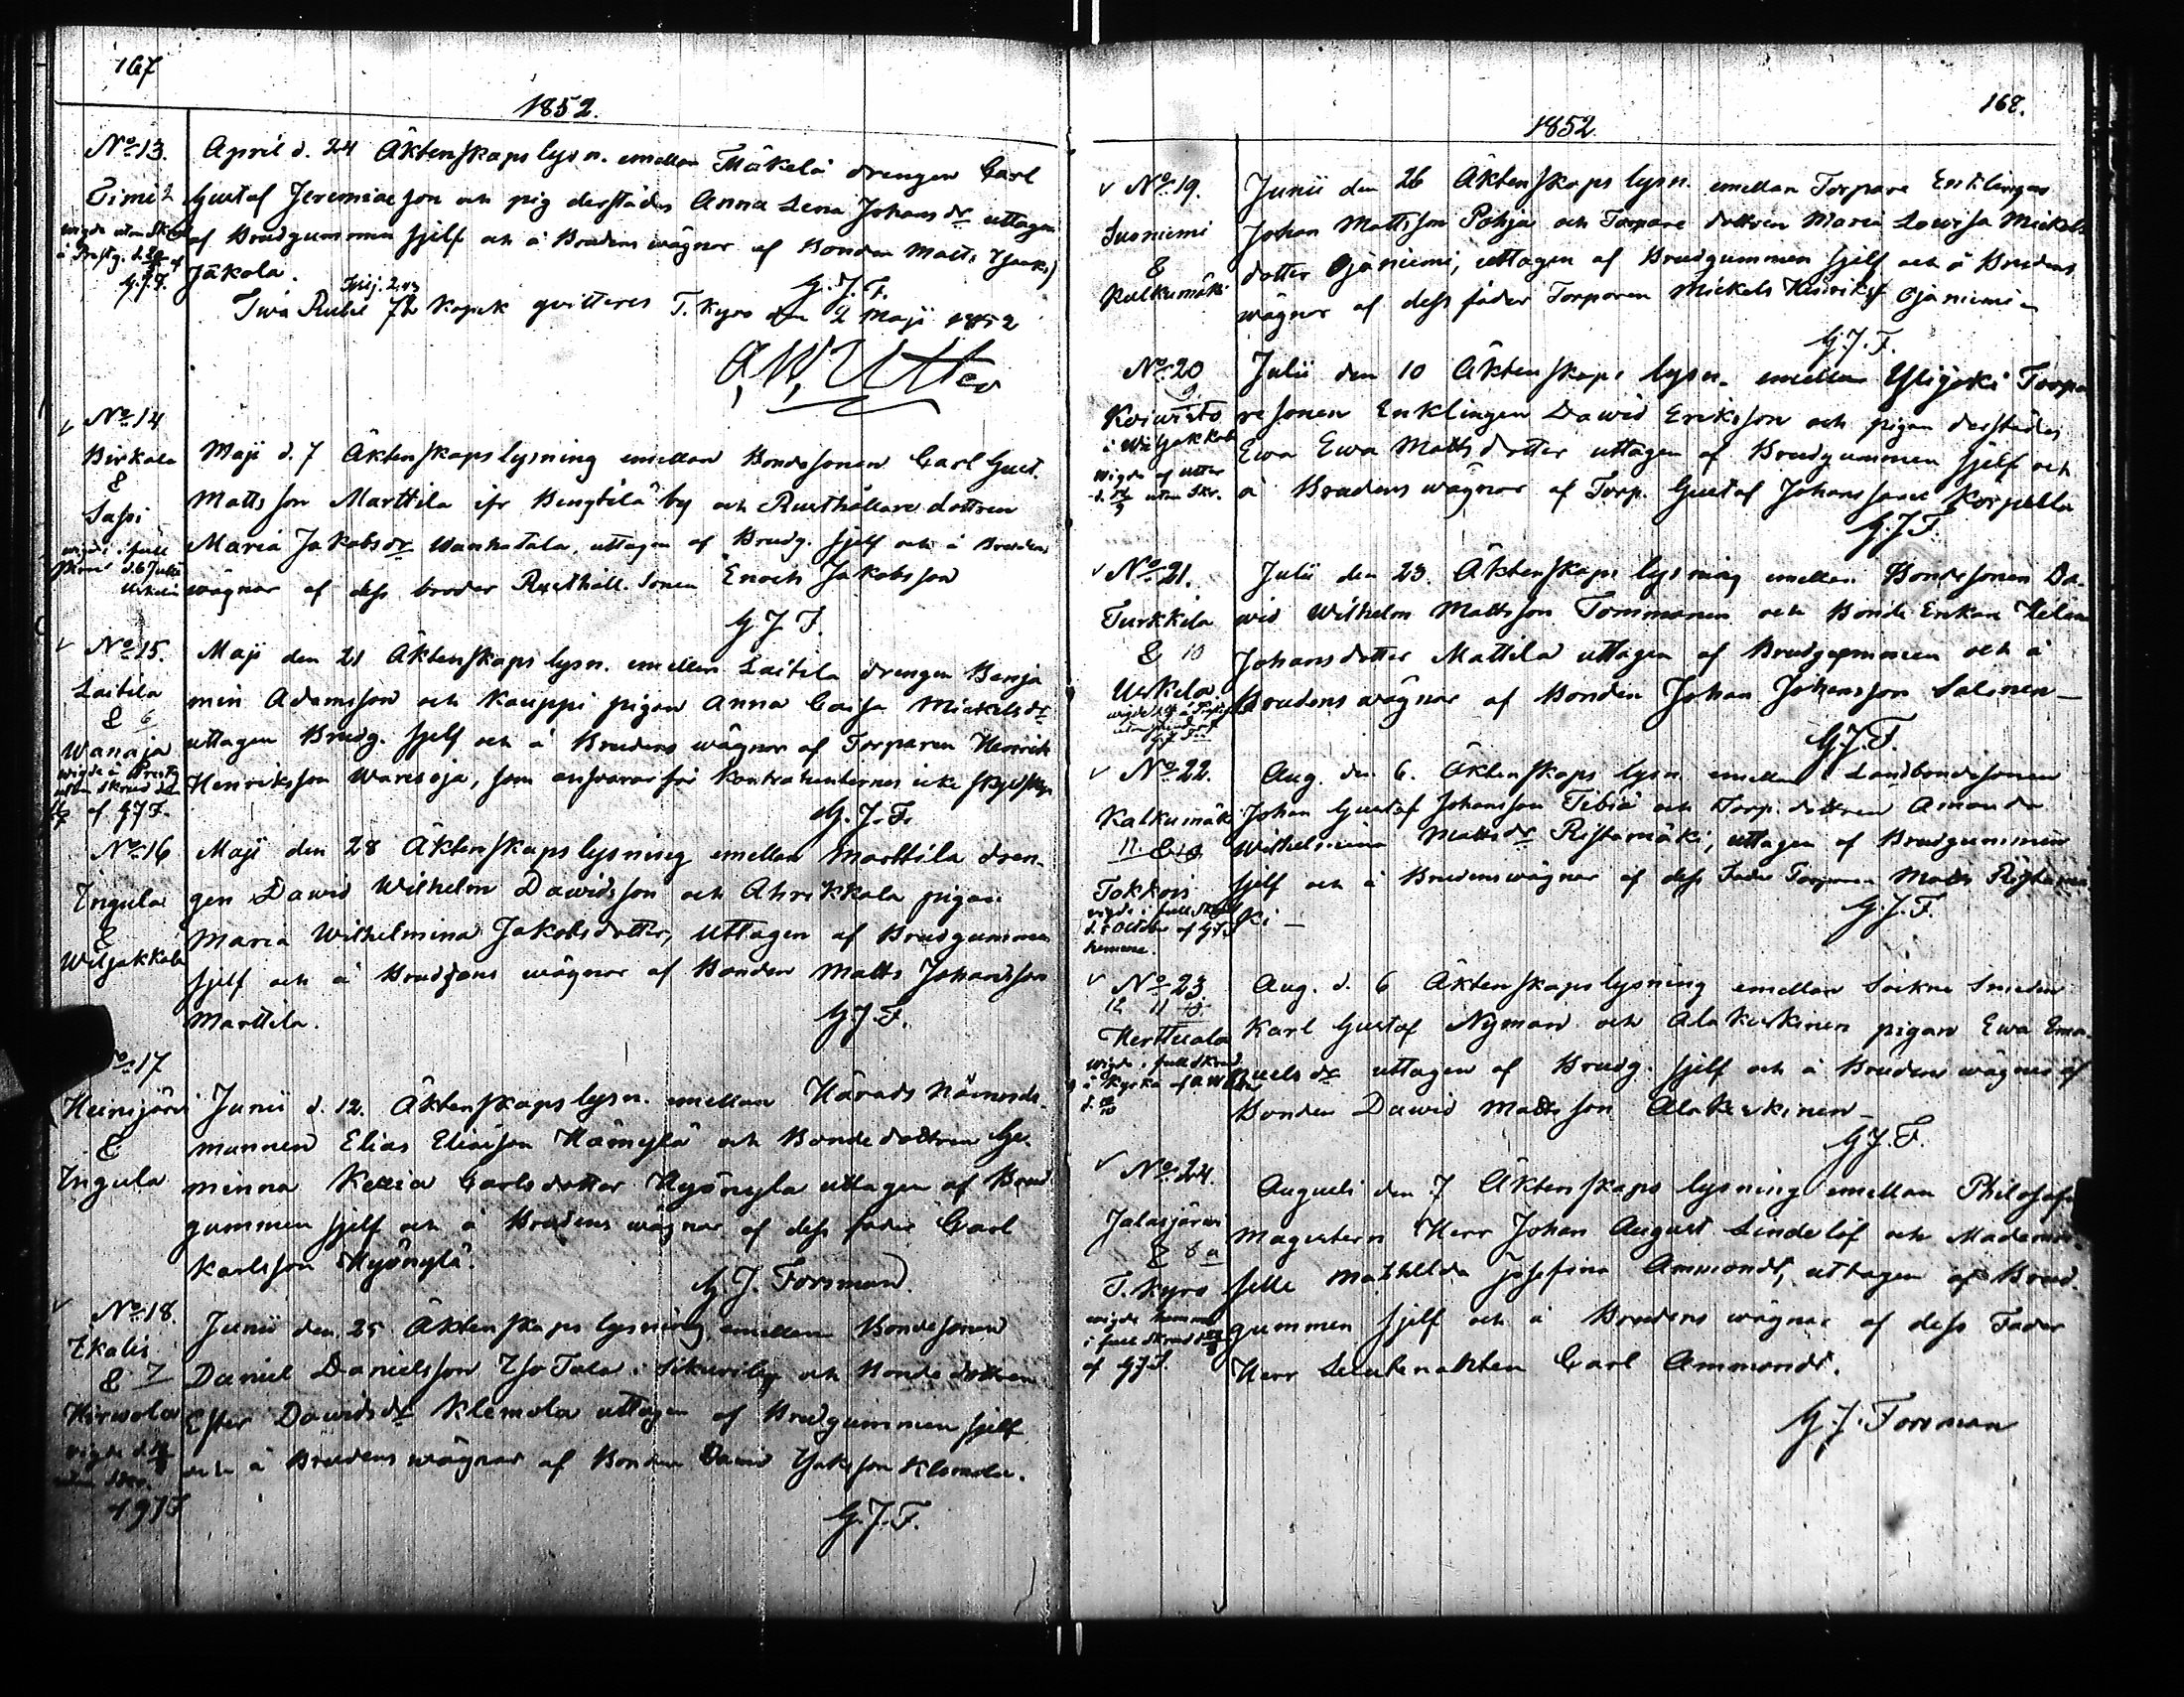 167
1852.
No 13.
Timi 2
wigde utan Skr
G.J.F.
April d. 24 Äktenskaps lysn. emellan Mäkelä drengen Carl
Gustaf Jeremiaeson och pig derstädes Anna Lena Johansdr uttagen
af Brudgummen sjelf och å Brudens wägnar af Bonden Matts Isaaks)
Jäkola.
G.J.F.
Twå Rubel 72 Kopek qvitteras T. Kyro den 2 Maji 1852
A.W. Utter
No 14
Birkala
&
Sasi
Maji d. 7 Äktenskapslysning emellan Bondesonen Carl Gust.
Mattsson Marttila ifr Bengtilä by och Rusthållare dottren
Maria Jakobsdr Wanhatalo, uttagen af Brudg. sjelf och å Brudens
wägnar af dess broder Rusthåll. Sonen Enoch Jakobsson
G J F.
No 15.
Laitila
& 6
Wanaja
wigde i Prestg
utan Skrud den
af GJF.
Maji den 21 Äktenskaps lysn. emellan Laitila drengen Benja
min Adamsson och Kauppi pigan Anna Caisa Mickelsdr
uttagen Brudg. sjelf och å Brudens wägnar af Torparen Henrik
Henriksson Waresoja, som answarar för Kontrahenternes icke skyldskap
G.J.F.
No 16
Yngula
&
Wiljakkala
Maji den 28 Äktenskapslysning emellan Marttila dren-
gen Dawid Wilhelm Dawidsson och Ahrikkala pigan
Maria Wilhelmina Jakobsdotter, uttagen af Brudgummen
sjelf och å Brudens wägnar af Bonden Matts Johansson
Marttila.
G.J.F.
No 17
Heinijärvi
&
Yngula
Junii d. 12. Äktenskapslysn. emellan Härads Nämnds-
mannen Elias Eliaeson Hämylä och Bonde dottren He-
minna Carlsdotter Hyönylä uttagen af Brud
gummen sjelf och å Brudens wägnar af dess fader Carl
Karlsson Hyönylä.
G. J. Forsman
No 18.
Ikalis
& 7
Herwola
Junii den 25 Äktenskaps lysning emellan Bondesonen
Daniel Danielsson Iso Tala i Sikuriby och Bonde dottren
Ester Dawidsdr Klemola uttagen af Brudgummen sjelf
och å Brudens wägnar af Bonden David Isaksson Klemola.
G.J.F.
168.
1852
No 19.
Suoniemi
&
Kalkumäki
Junii den 26 Äktenskaps lysn. emellan Torpare Enklingen
Johan Mattsson Pohja och Torpare dottren Maria Lowisa Mickels
dotter Ojaniemi, uttagen af Brudgummen sjelf och å Brudens
wägnar af dess fader Torparen Mickels Henriksf Ojaniemi
G.J.F.
No 20
Koiwisto
i Wiljakkala
wigde af Utter
utan Skr.
Julii den 10 Äktenskaps lysn. emellan Ylijoki Torpa
re sonen Enklingen Dawid Eriksson och pigan derstädes
Ewa Ewa Mattsdotter uttagen af Brudgummen sjelf och
å Brudens wägnar af Torp. Gustaf Johansson Korpella
G.J.F.
No 21.
Turkkila
& 10
Uskela
Julii den 23. Äktenskaps lysning emellan Bondesonen Da-
wid Wilhelm Mattsson Tommonen och Bonde Enkan Helena
Johansdotter Mattila uttagen af Brudgummen och å
Brudens wägnar af Bonden Johan Johansson Salonen
G.J.F.
No 22.
Kalkumäki
Tokkois
wigde i full Skrud
Aug. den 6. Äktenskaps lysn. emellan Landbondesonen
Johan Gustaf Johansson Tibiä och Torp. dottren Amanda
Wilhelmina Mattsdr Ristamäki, uttagen af Brudgummen
sjelf och å Brudens wägnar af dess Fader Torparen Matts Ristamä
ki
G.J.F.
No 23
Herttuala
wigde i full Skrud
i Kyrka af
Aug. d. 6 Äktenskaps lysning emellan Sockne Smeden
Karl Gustaf Nyman och Alakeskinen pigan Ewa Ema-
nuelsdr uttagen af Brudg. sjelf och å Brudens wägnar af
Bonden Dawid Mattsson Alakeskinen
G.J.F.
No 24.
Jalasjärvi
&
T. Kyro
wigde hemma
i full Skrud
af GJF.
Augusti den 7 Äktenskaps lysning emellan Philosofie
Magistern Herr Johan August Lindelöf och Mademoi-
selle Mathilda Josefina Ammondt, uttagen af Brud
gummen sjelf och å Brudens wägnar af dess Fader
Herr Leutenanten Carl Ammondt.
G. J. Forsman